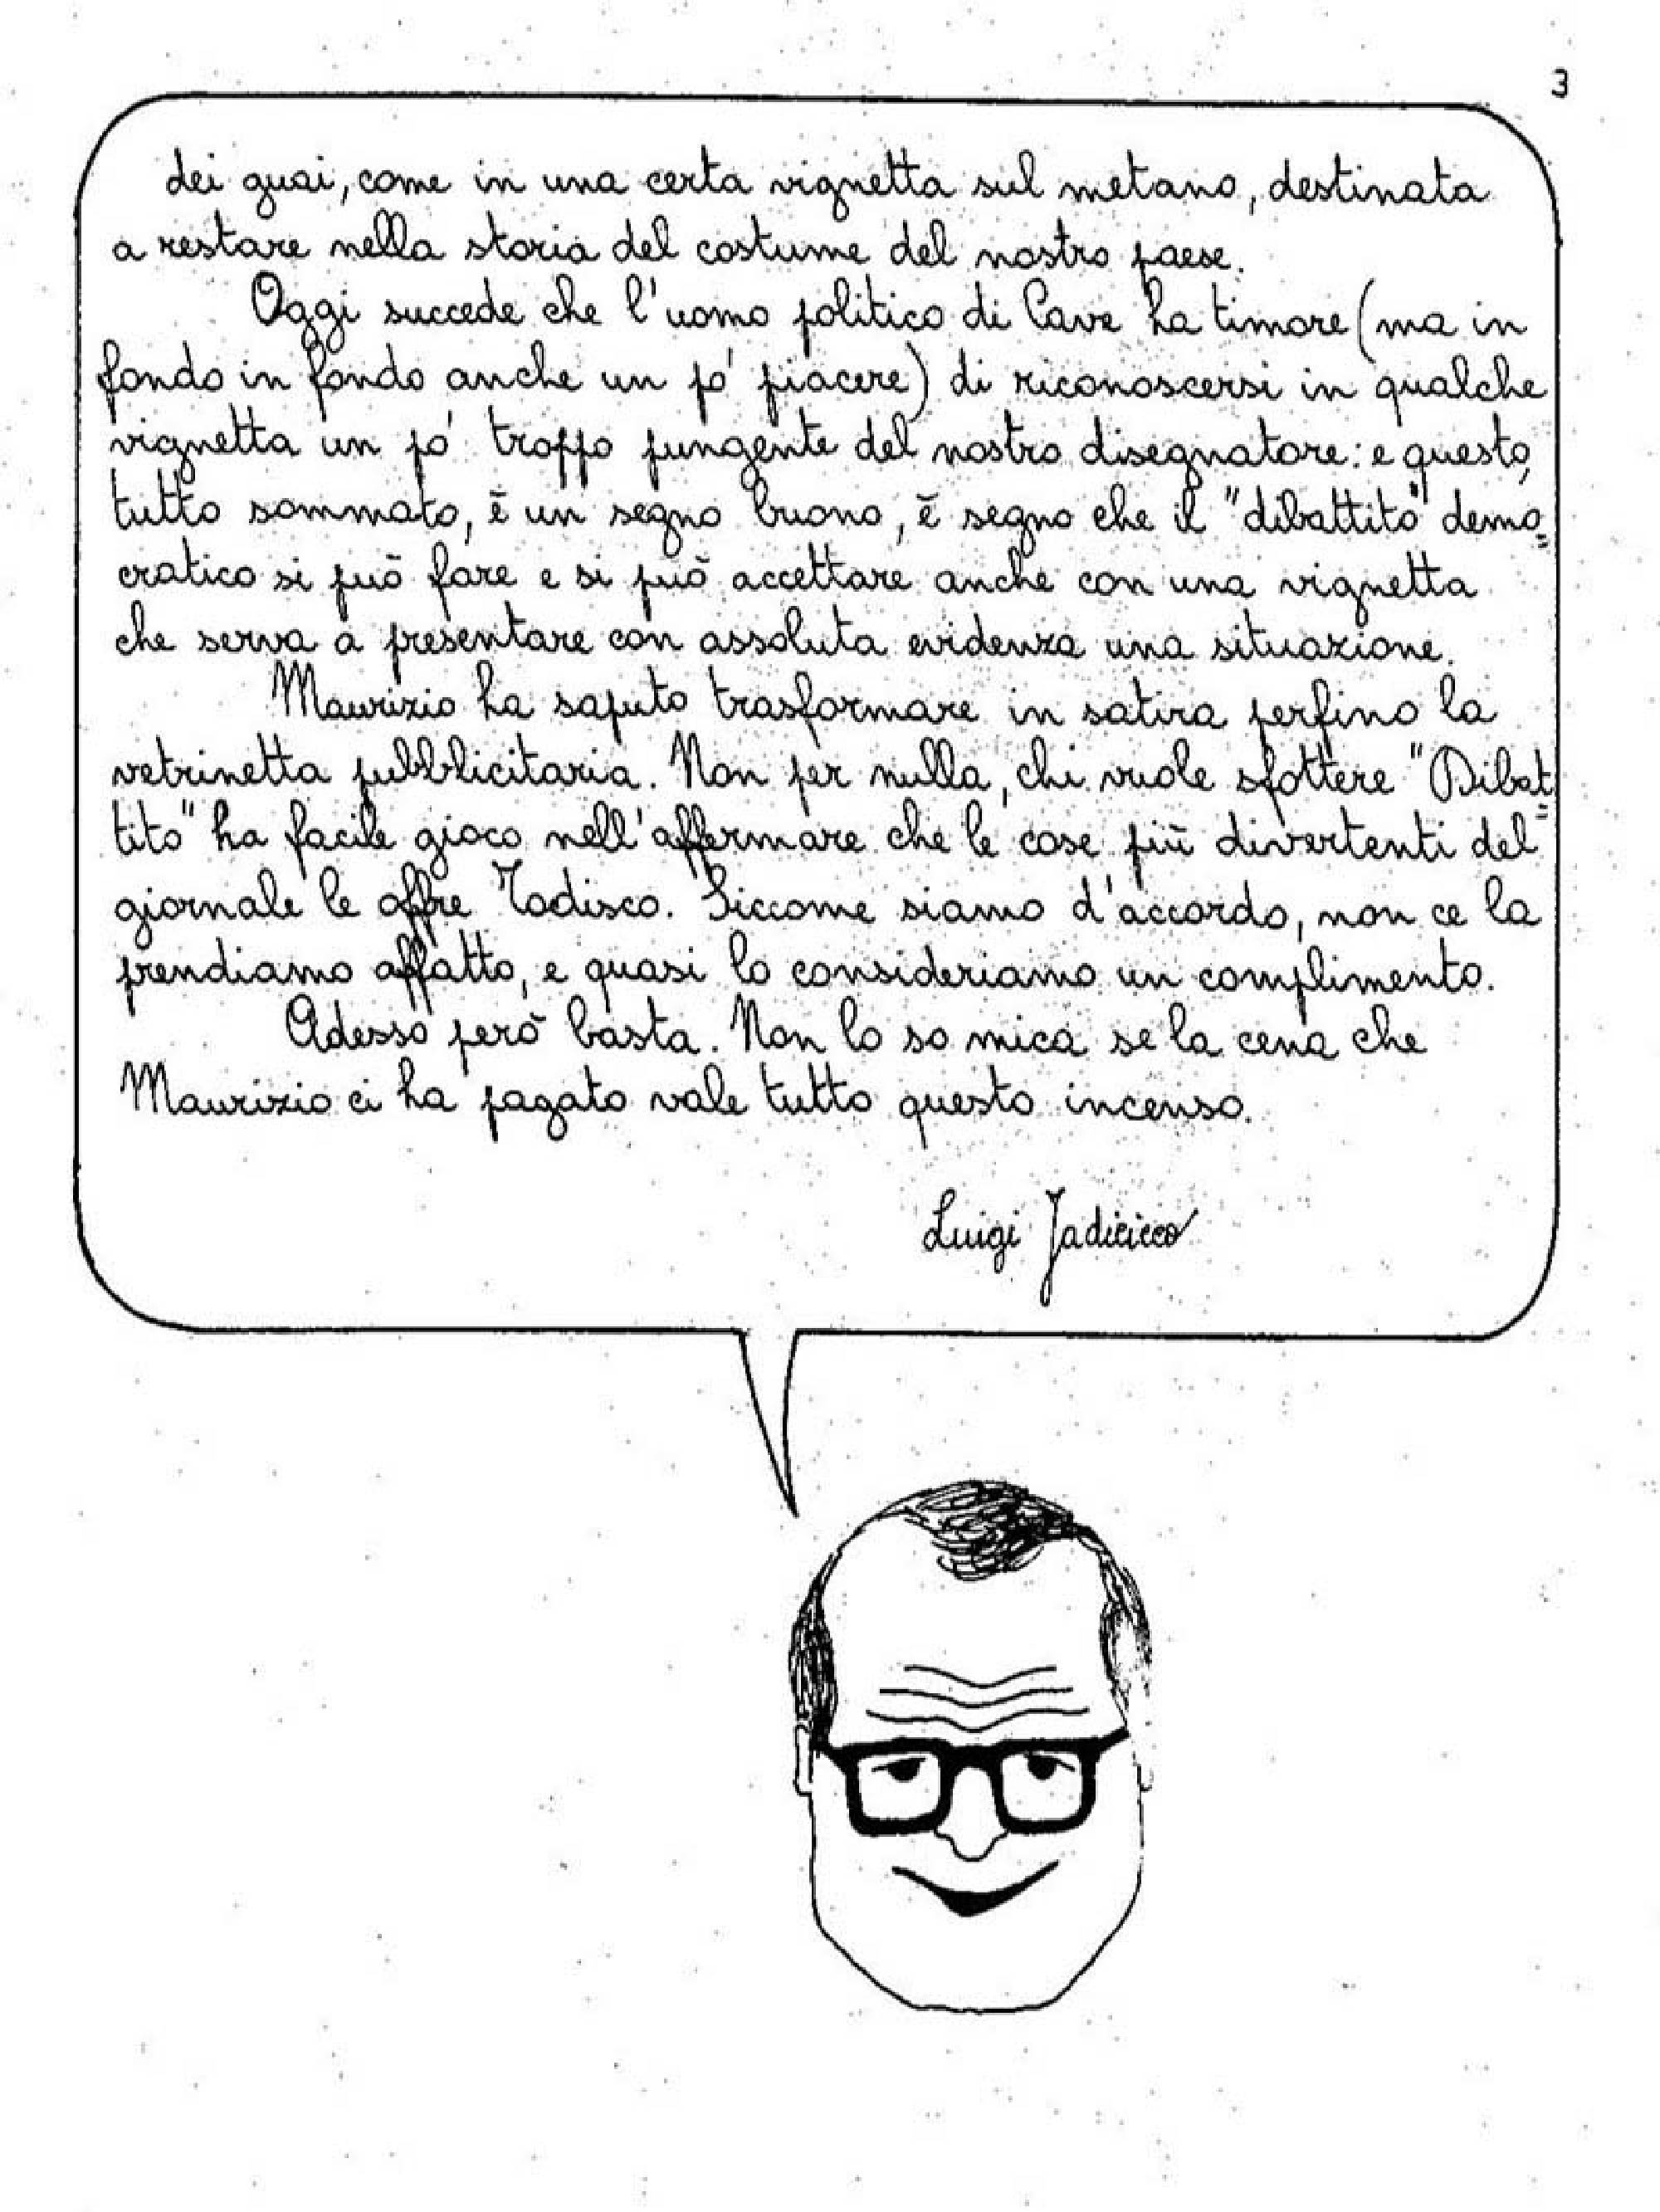 3
dei guai, come in una certa vignetta sul metano, destinata
a restare nella storia del costume del nostro paese.
Oggi succede che l'uomo politico di Cave ha timore (ma in
fondo in fondo anche un pò piacere) di riconoscersi in qualche
vignetta un pò troppo pungente del nostro disegnatore: e questo,
tutto sommato, è un segno buono, è segno che il "dibattito" demo=
cratico si può fare e si può accettare anche con una vignetta
che serva a presentare con assoluta evidenza una situazione.
Maurizio ha saputo trasformare in satira perfino la
vetrinetta pubblicitaria. Non per nulla, chi vuole sfottere "Dibat=
tito" ha facile gioco nell'affermare che le cose più divertenti del
giornale le offre Todisco. Siccome siamo d'accordo, non ce la
prendiamo affatto, e quasi lo consideriamo un complimento.
Adesso però basta. Non lo so mica se la cena che
Maurizio ci ha pagato vale tutto questo incenso.
Luigi Jadicicco